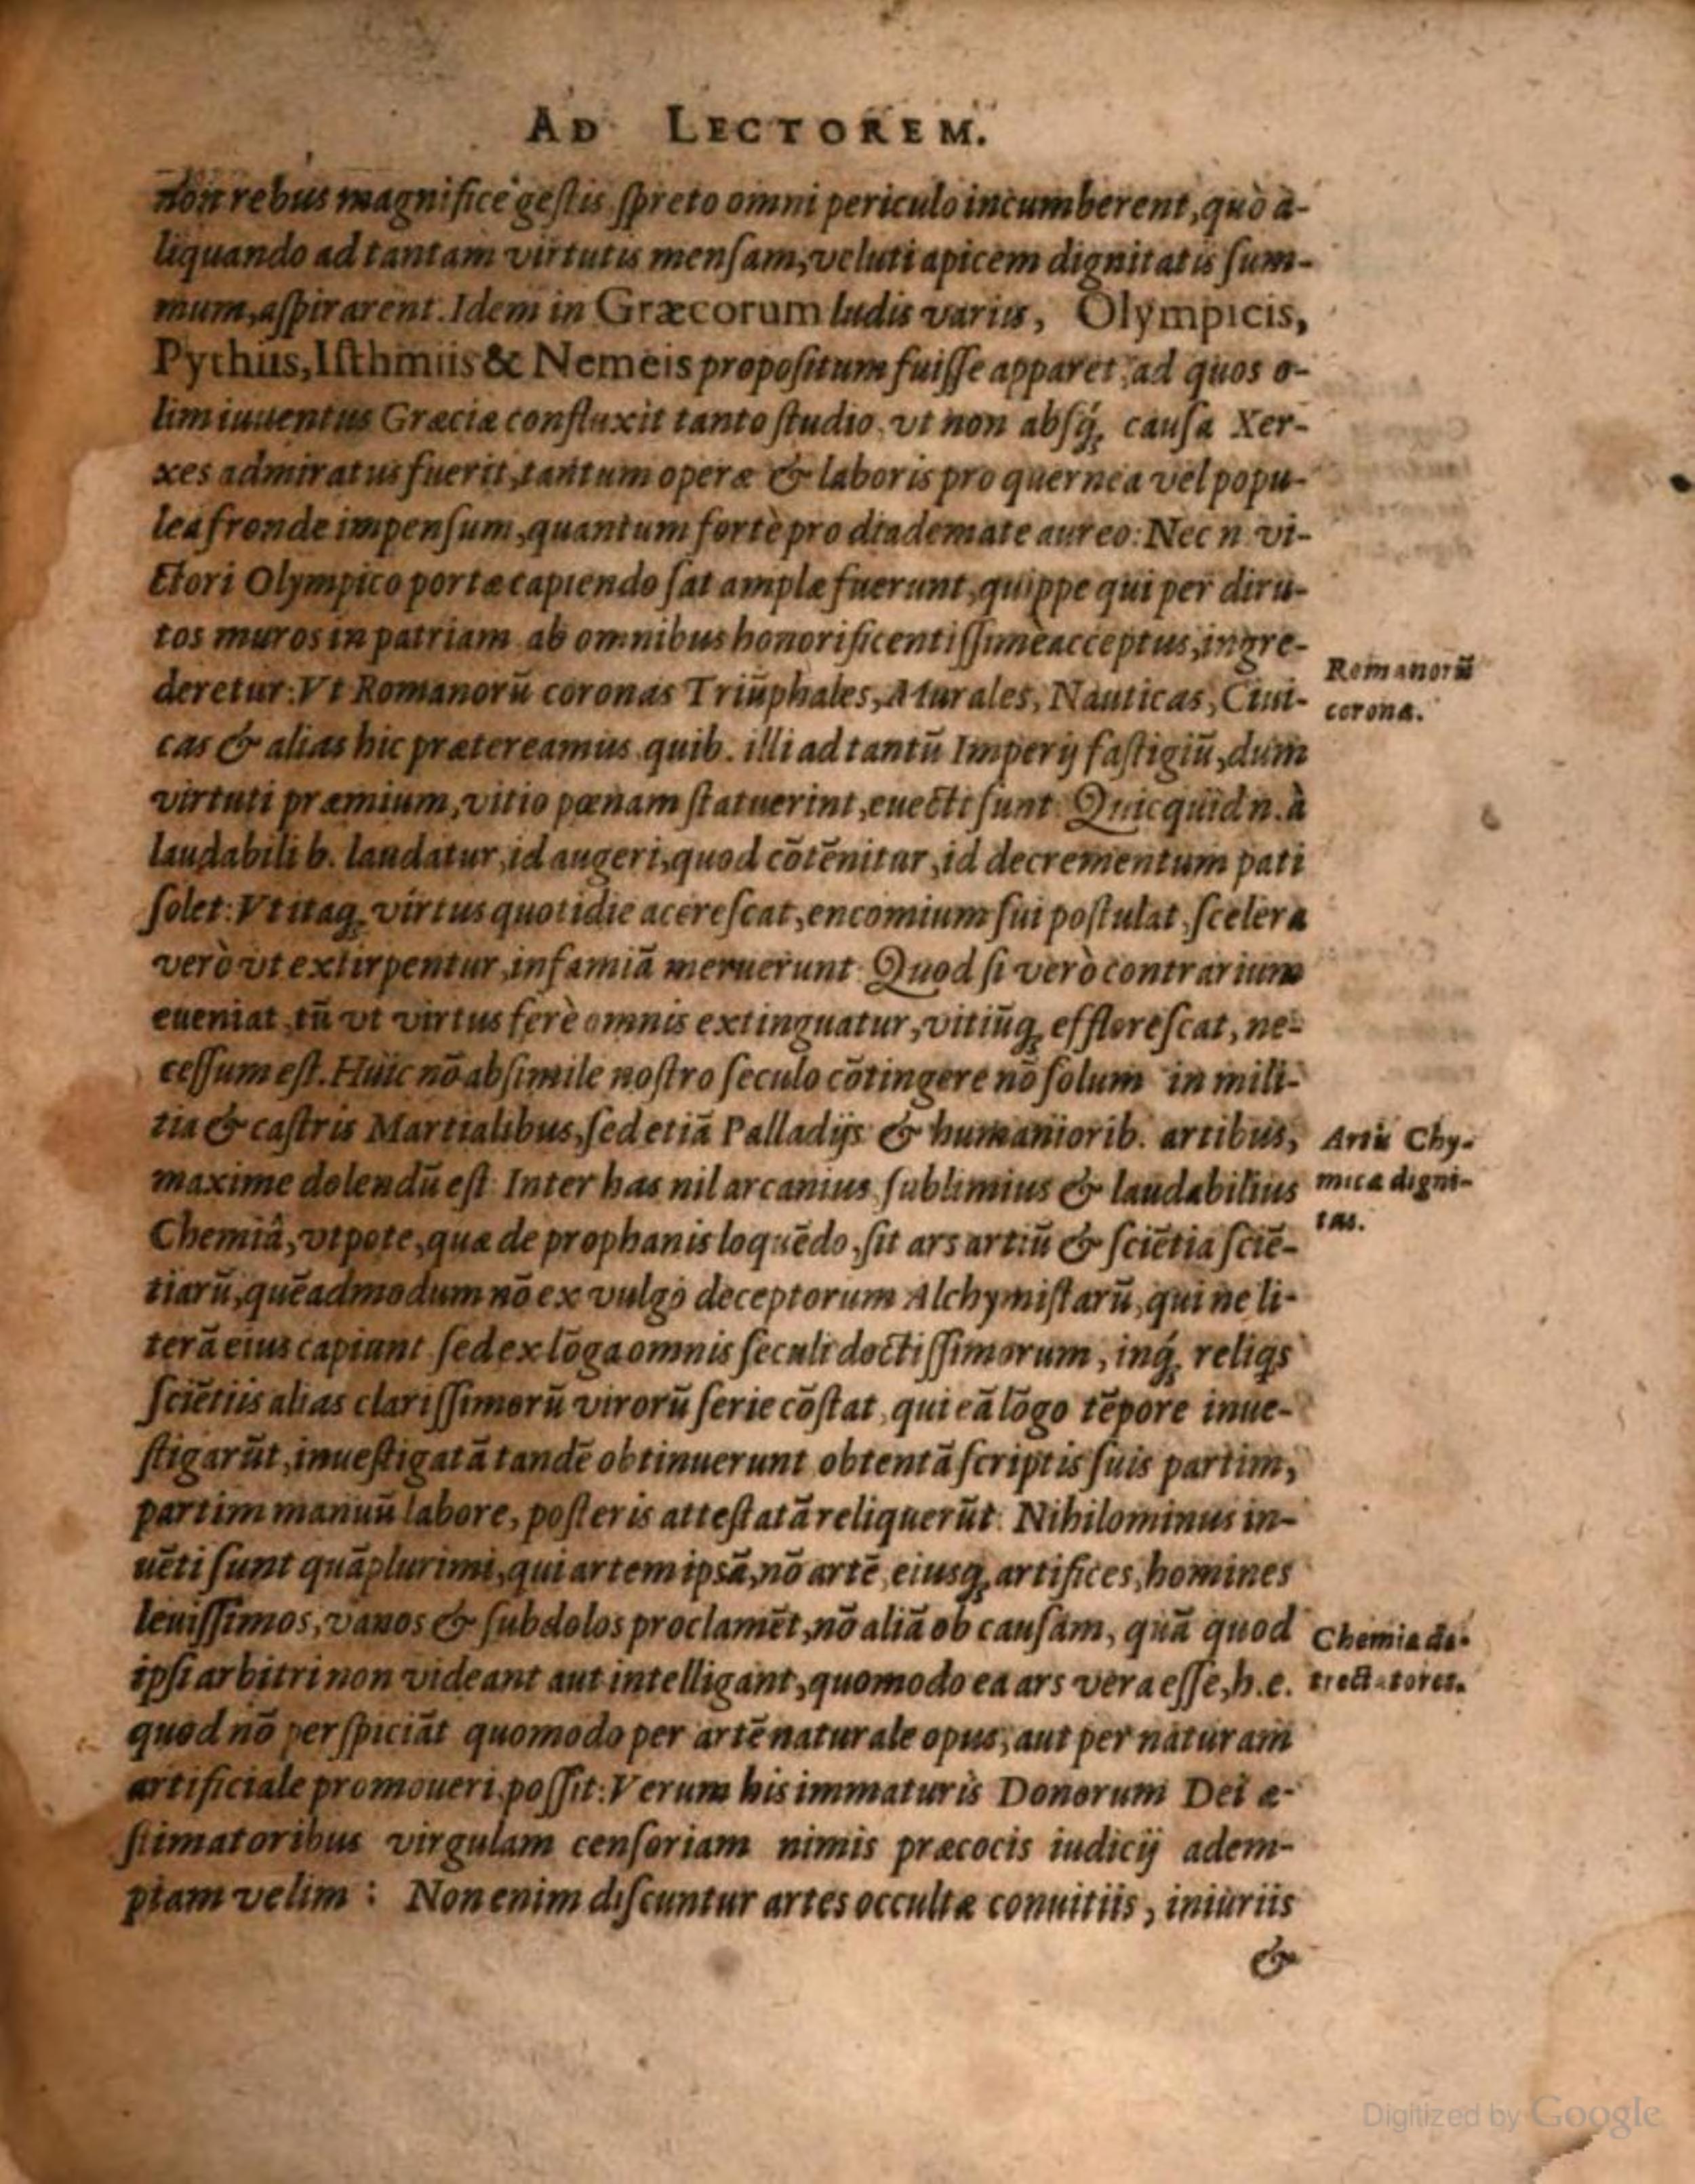 AD LECTOREM.
non rebus magnificè gestis spreto omni periculo incumberent, quò a-
liquando ad tantam virtutis mensam, veluti apicem dignitatis sum-
mum, aspirarent. Idem in Græcorum ludis variis, Olympicis,
Pythiis, Isthmiis & Nemeis propositum fuisse apparet, ad quos o-
lim iuuentus Græciæ confluxit tanto studio, vt non absq; causa Xer-
xes admiratus fuerit, tantum operæ & laboris pro quernea vel popu-
lea fronde impensum, quantum fortè pro diademate aureo: Nec n. vi-
ctori Olympico portæ capiendo sat amplæ fuerunt, quippe qui per diru-
tos muros in patriam ab omnibus honorificentissimè acceptus, ingre-
deretur: Vt Romanorū coronas Triūphales, Murales, Nauticas, Ciui-
Romanorū
corona.
cas & alias hic prætereamus quib. illi ad tantū Imperij fastigiū, dum
virtuti præmium, vitio pœnam statuerint, euecti sunt. Quicquid n. à
laudabili b. laudatur, id augeri, quod cōtēnitur, id decrementum pati
solet: Vt itaq; virtus quotidie accrescat, encomium sui postulat, scelera
verò vt extirpentur, infamiā meruerunt. Quod si verò contrarium
eueniat, tū vt virtus ferè omnis extinguatur, vitiūq; efflorescat, ne-
cessum est. Huic nō absimile nostro seculo cōtingere nō solum in mili-
tia & castris Martialibus, sed etiā Palladijs & humaniorib. artibus,
Artis Chy-
micæ digni-
tas.
maxime dolendū est. Inter has nil arcanius, sublimius & laudabilius
Chemiâ, vtpote, quæ de prophanis loquēdo, sit ars artiū & sciētia sciē-
tiarū, quēadmodum nō ex vulgo deceptorum Alchymistarū, qui ne li-
terā eius capiunt, sed ex lōga omnis seculi doctissimorum, inq; reliqs
sciētiis alias clarissimorū virorū serie cōstat, qui eā lōgo tēpore inue-
stigarūt, inuestigatā tandē obtinuerunt, obtentā scriptis suis partim,
partim manuū labore, posteris attestatā reliquerūt. Nihilominus in-
uēti sunt quāplurimi, qui artem ipsā, nō artē, eiusq; artifices, homines
leuissimos, vanos & subdolos proclamēt, nō aliā ob causam, quā quod
Chemiæ de-
trectatores.
ipsi arbitri non videant aut intelligant, quomodo ea ars vera esse, h.e.
quod nō perspiciāt quomodo per artē naturale opus, aut per naturam
artificiale promoueri possit: Verum his immaturis Donorum Dei æ-
stimatoribus virgulam censoriam nimis præcocis iudicij adem-
ptam velim: Non enim discuntur artes occultæ conuitiis, iniuriis
&
Digitized by Google